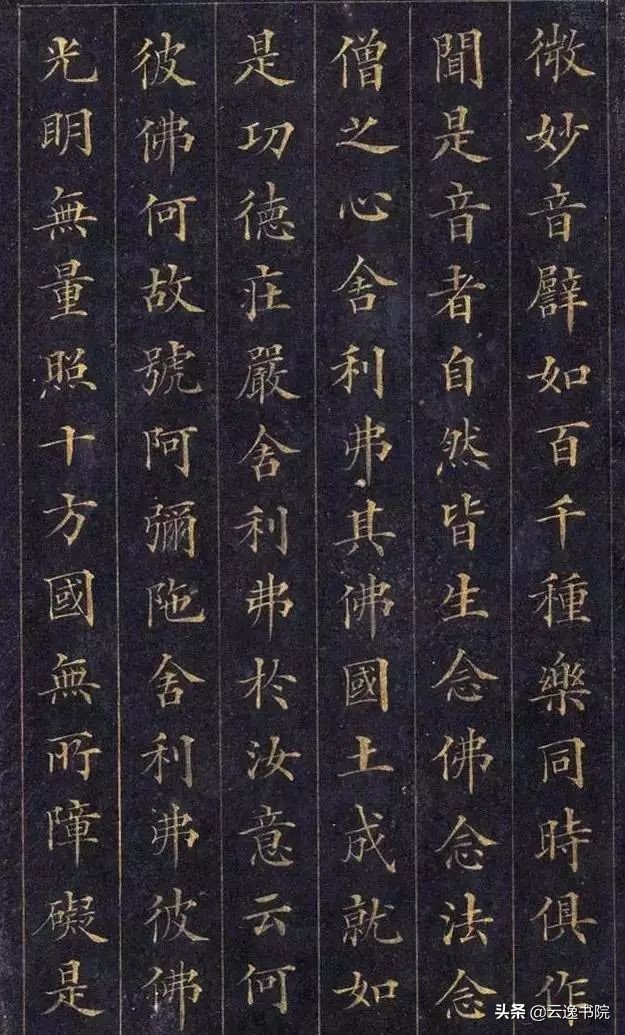 微妙音譬如百千種樂同時俱作
聞是音者自然皆生念佛念法念
僧之心舍利弗其佛國土成就如
是功德莊嚴舍利弗於汝意云何
彼佛何故號阿彌陁舍利弗彼佛
光明無量照十方國無所障礙是
头条@云逸书院